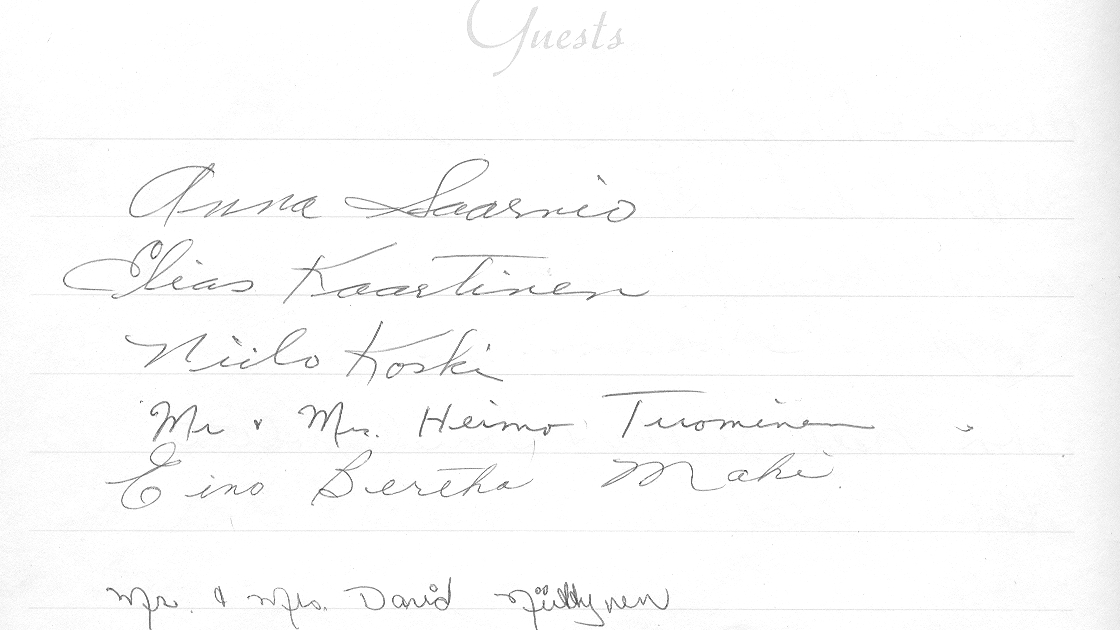 Guests
Anna Saarnio
Elias Kaartinen
Niilo Koski
Mr & Mrs. Heimo Tuominen
Eino Bertha Maki
Mr. & Mrs. David